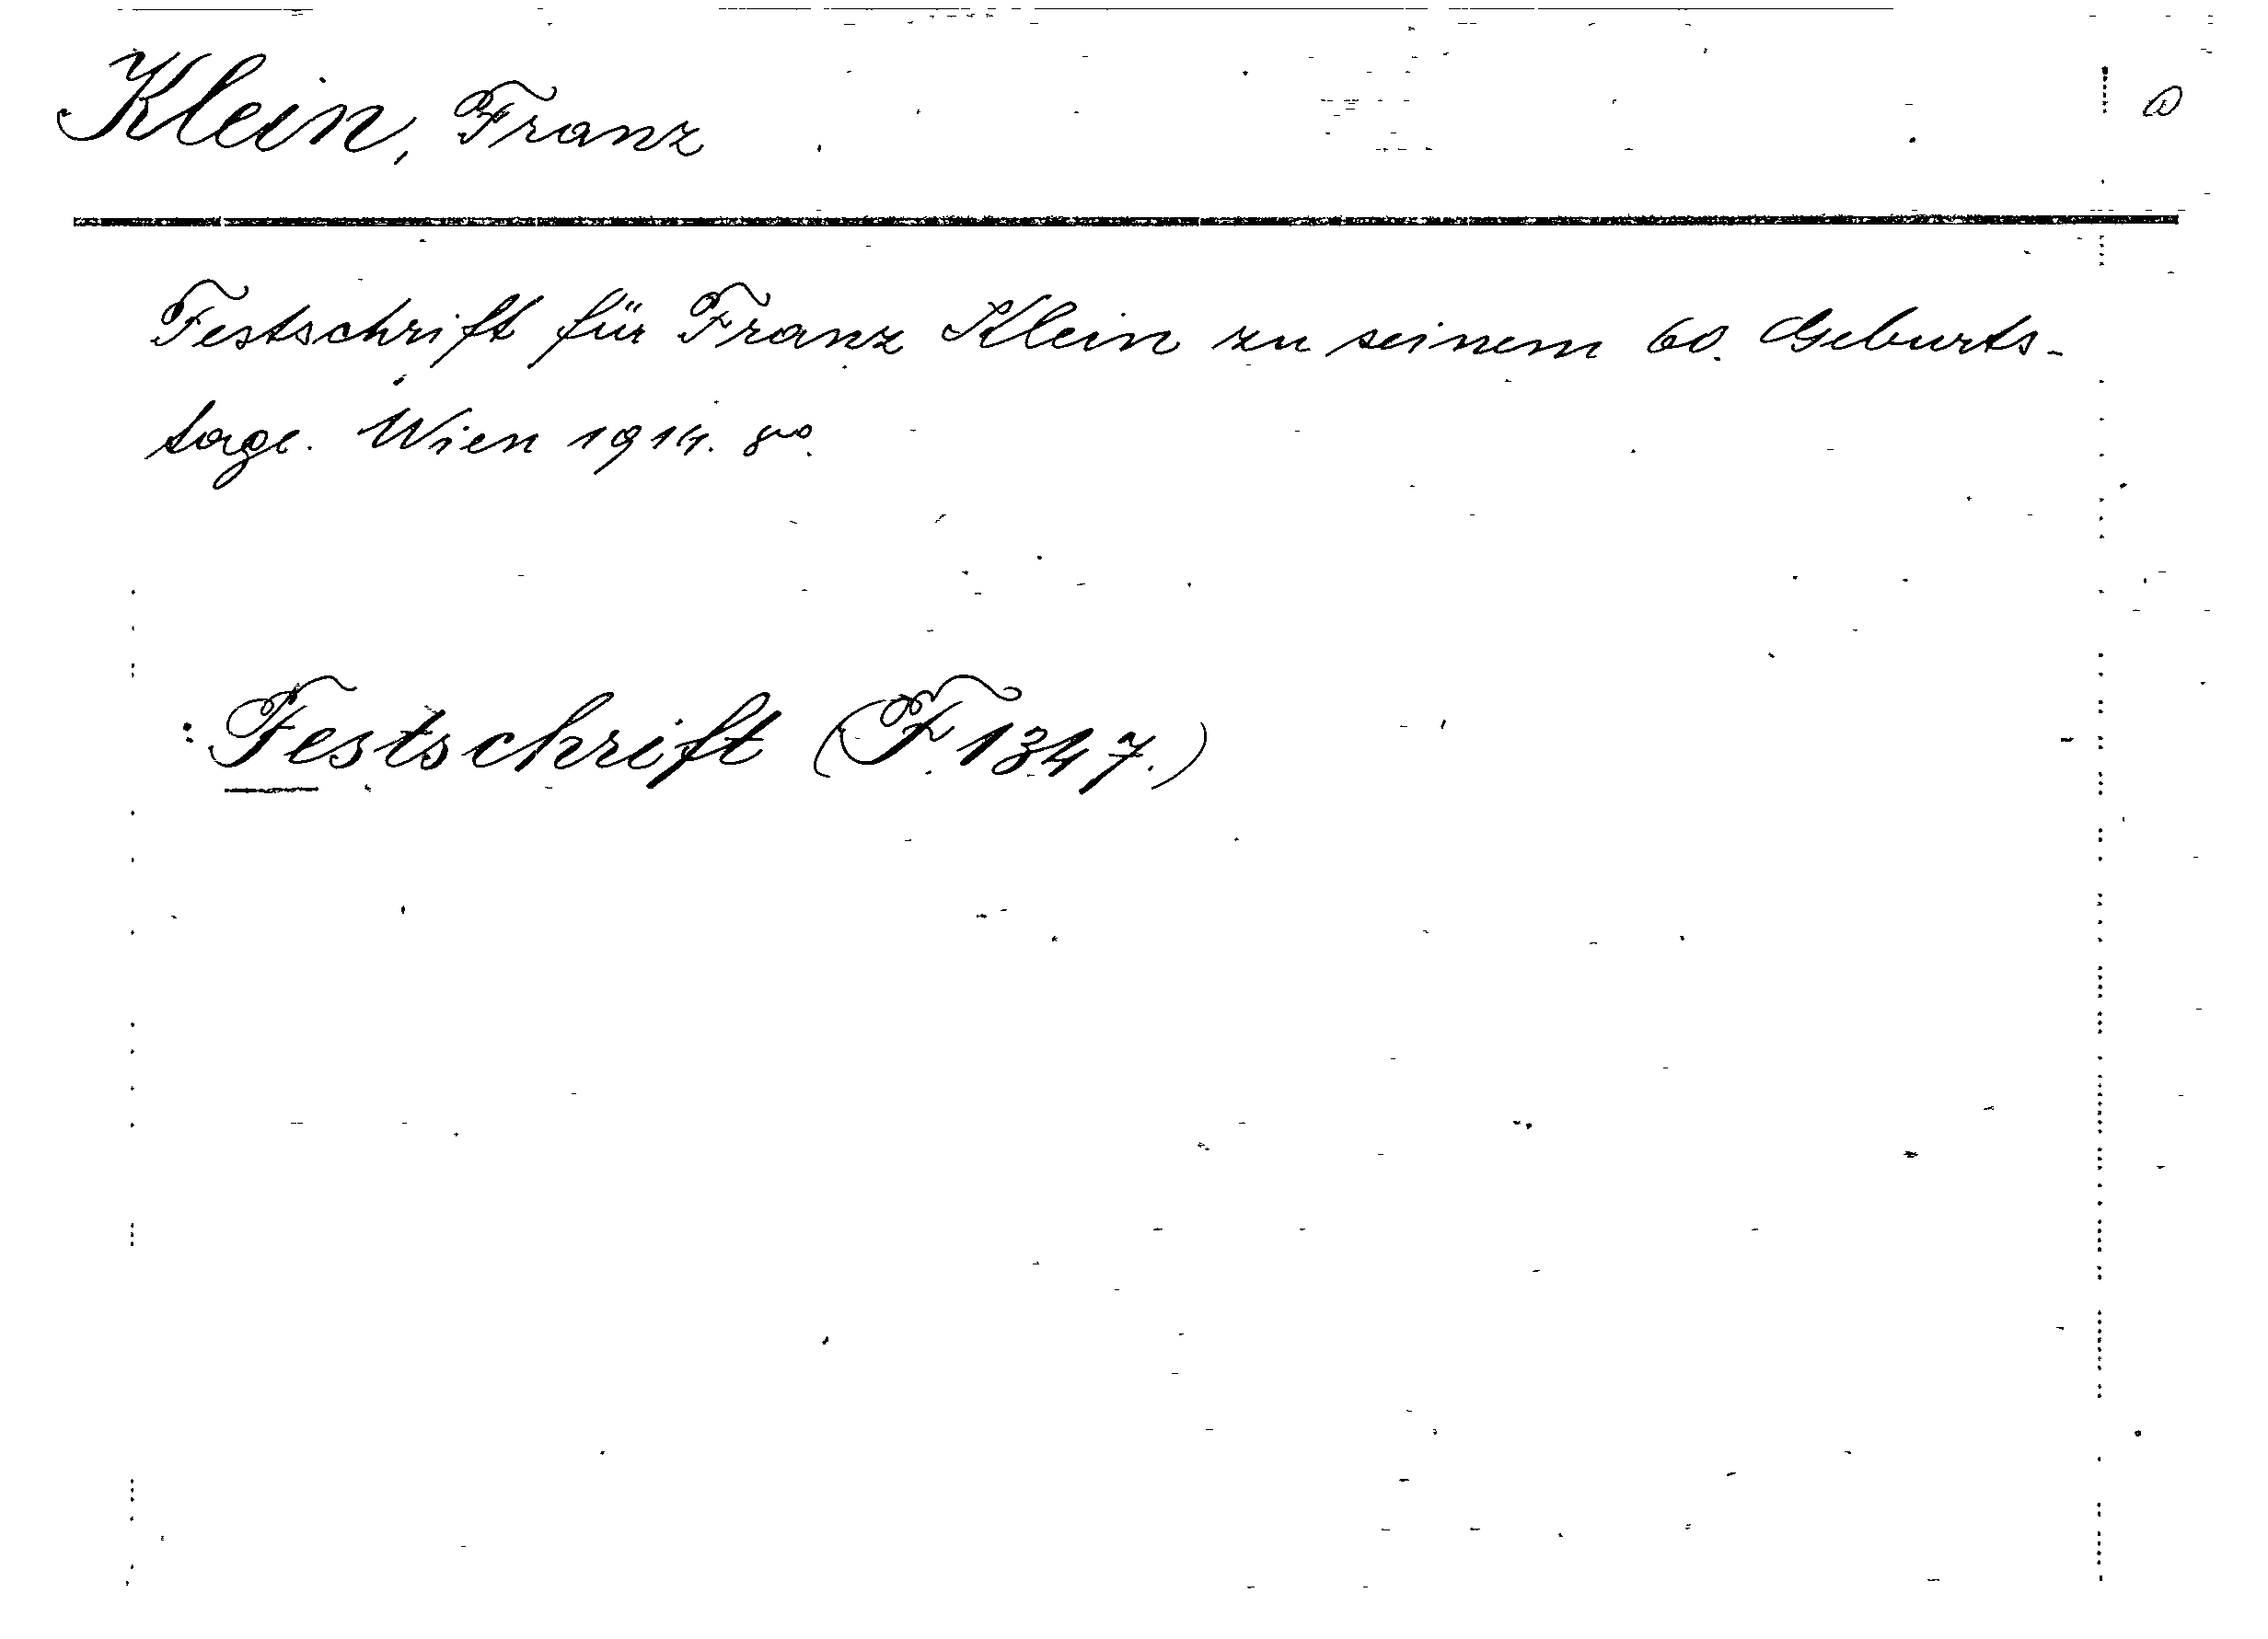 Klein, Franz
Festschrift für Franz Klein zu seinem 60. Geburts-
tage. Wien 1914. 8°.
: Festschrift (F 1347.)